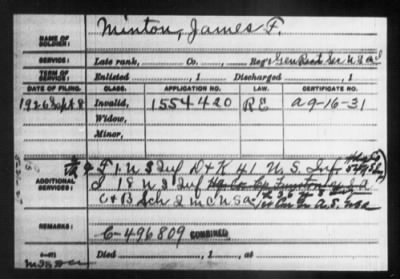 NAME OF SOLDIER: Minton, James F.
SERVICE: Late rank, Co. , Reg't Gen Rect Ser U.S.
TERM OF SERVICE: Enlisted , 1 Discharged , 1
DATE OF FILING. CLASS. APPLICATION NO. LAW. CERTIFICATE NO.
1926 Sept 8 Invalid, 1554420 RE A 9-16-31
Widow,
Minor,
ADDITIONAL SERVICES: F 1. U S Inf D & K 41 U. S. Inf
I 18 U S Inf
C & B Sch 2 M C U S A
REMARKS: C-496809 COMBINED
Died , 1 , at